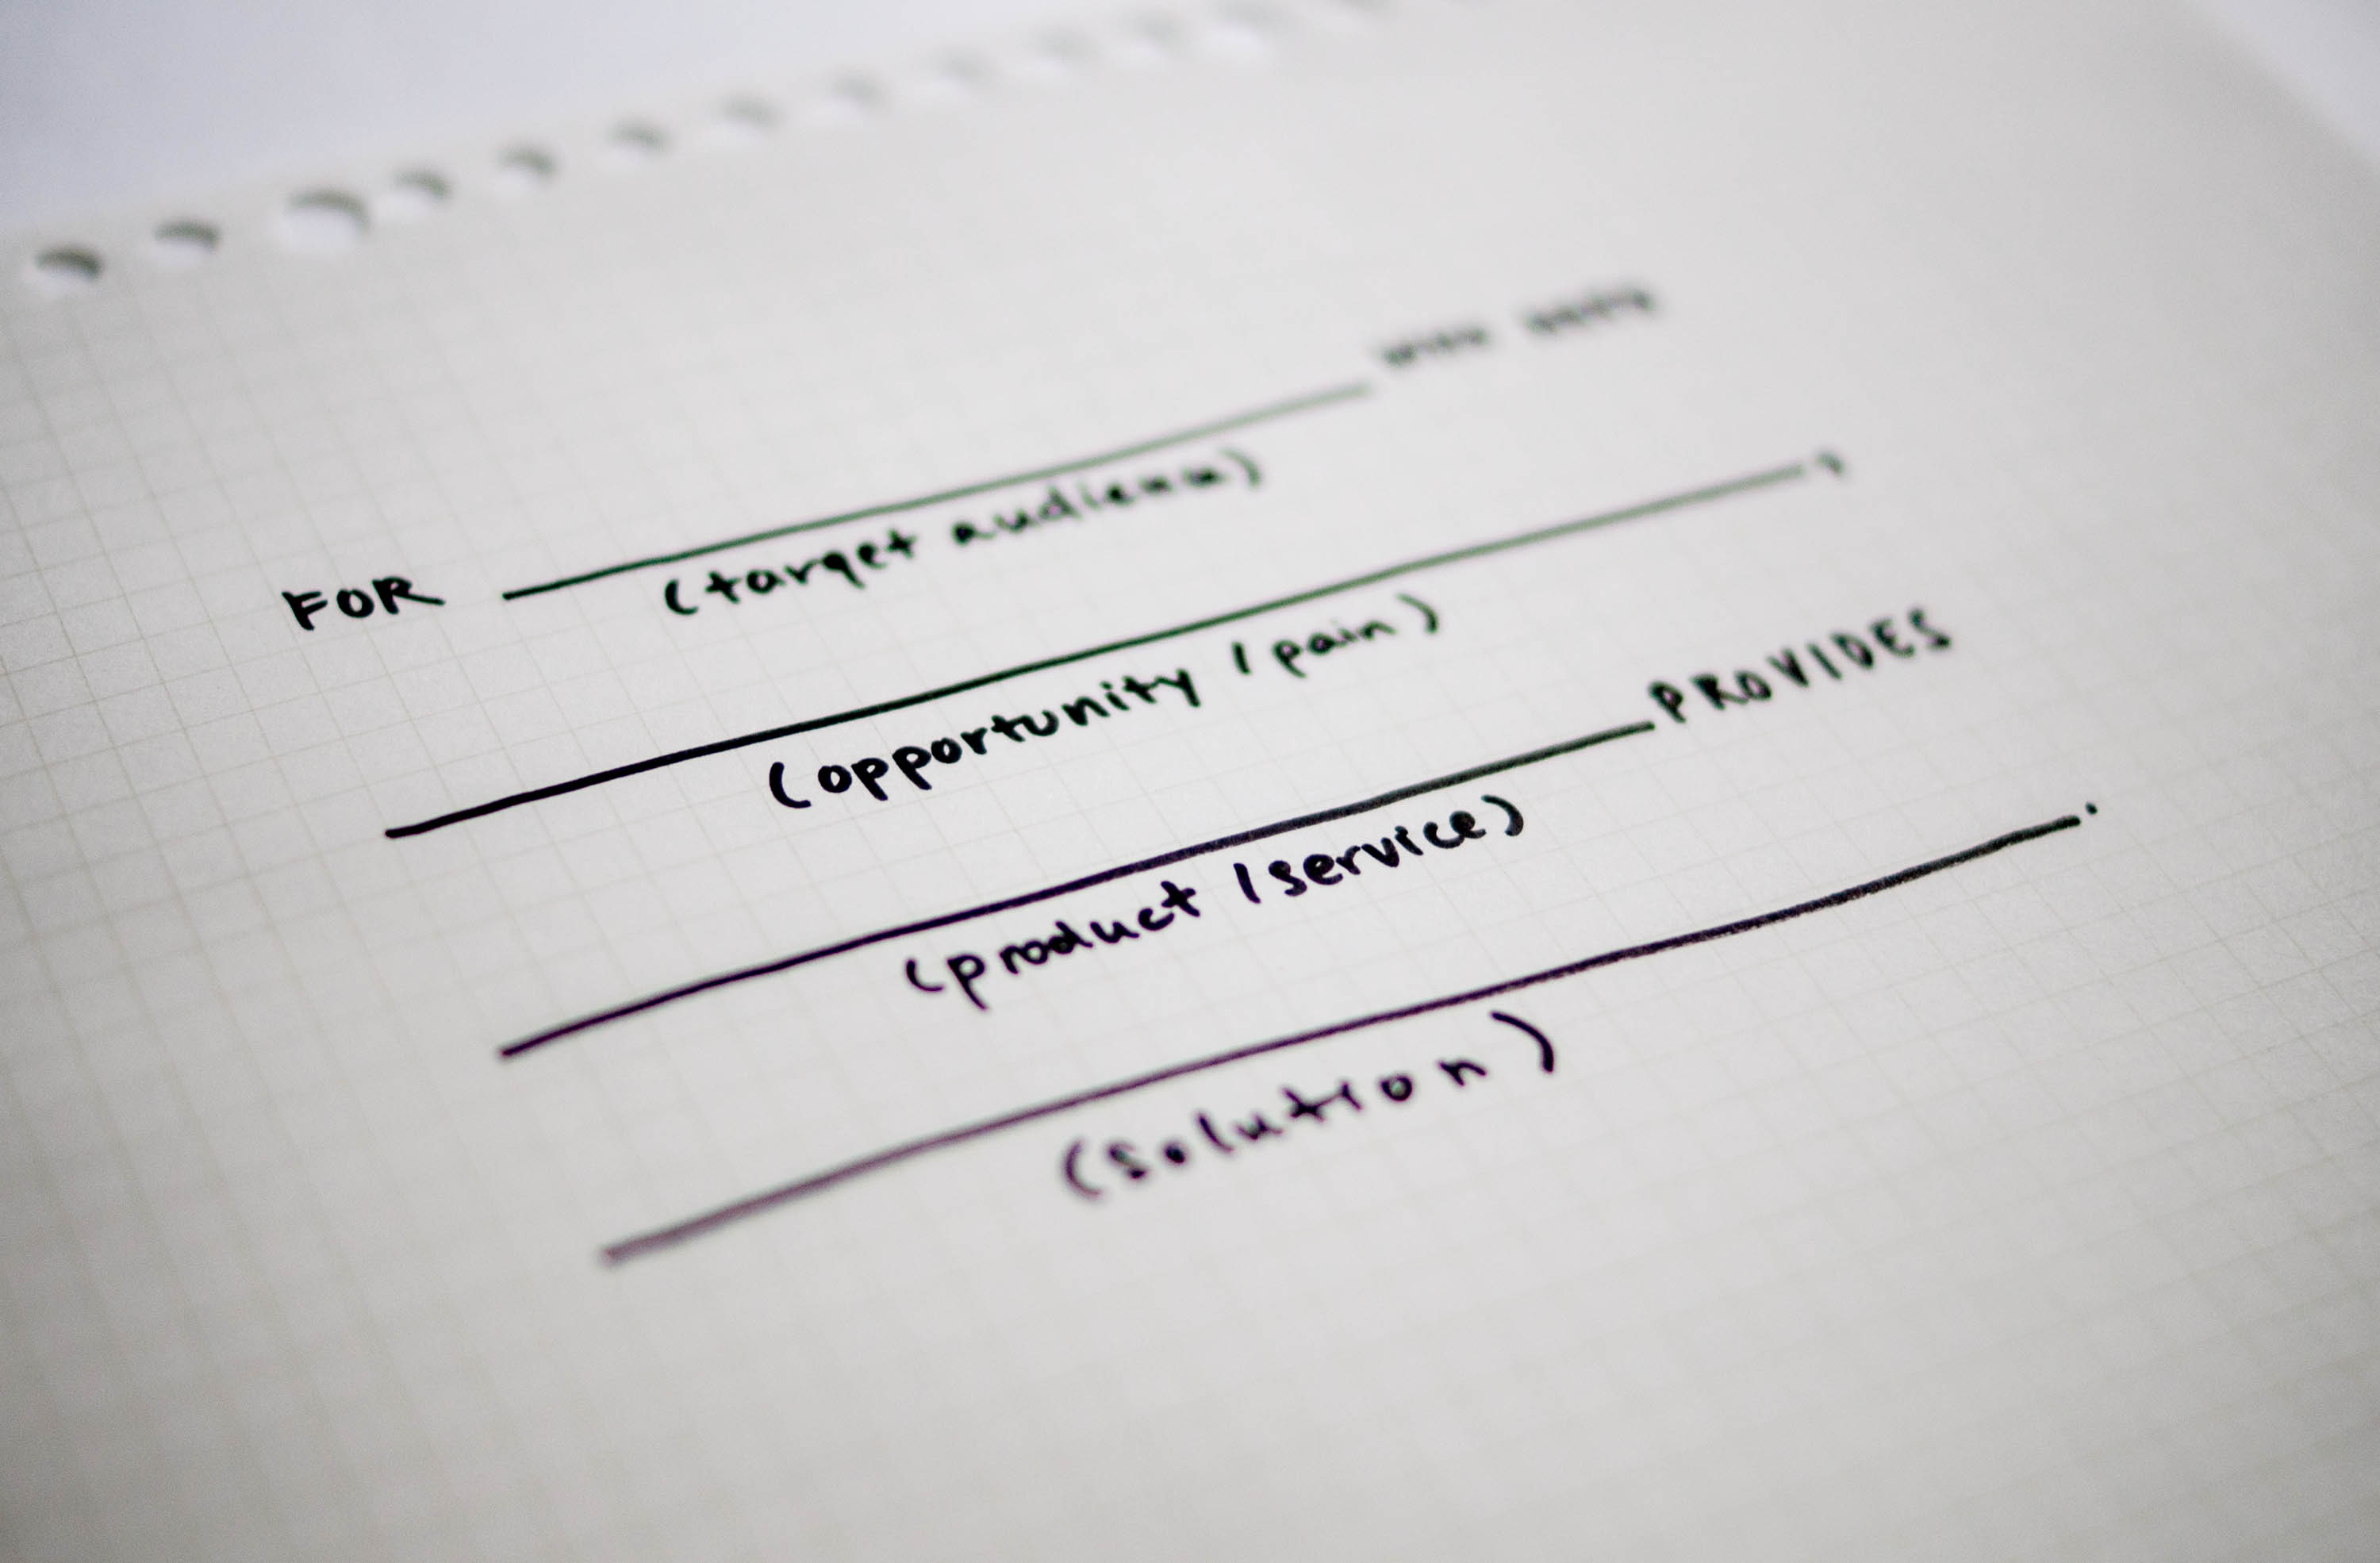 FOR
(target audience)
,
(opportunity / pain)
PROVIDES
(product / service)
.
(solution)